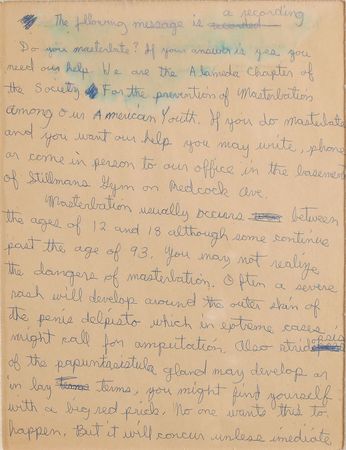 a recording
The following message is recorded
Do you masterbate? If your answer is yes you
need our help. We are the Alameda Chapter of
the Society For the prevention of Masterbation
among our American Youth. If you do masterbate
and you want our help you may write, phone
or come in person to our office in the basement
of Stillmans Gym on Redcock Ave.
Masterbation usually occurs between
the ages of 12 and 18 although some continue
past the age of 93. You may not realize
the dangers of masterbation. Often a severe
rash will develop around the outer skin of
the penis delpisto which in extreme cases
might call for amputation. Also
of the gland may develop or
in lay terms, you might find yourself
with a big red prick. No one wants this to
happen. But it will concur unless imediate